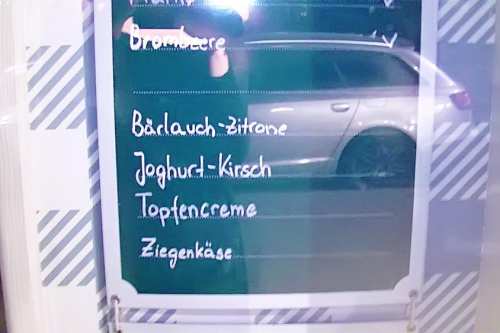 Brombeere
Bärlauch-Zitrone
Joghurt-Kirsch
Topfencreme
Ziegenkäse